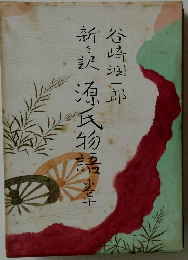 谷崎潤一郎
新々訳
源氏物語
巻十